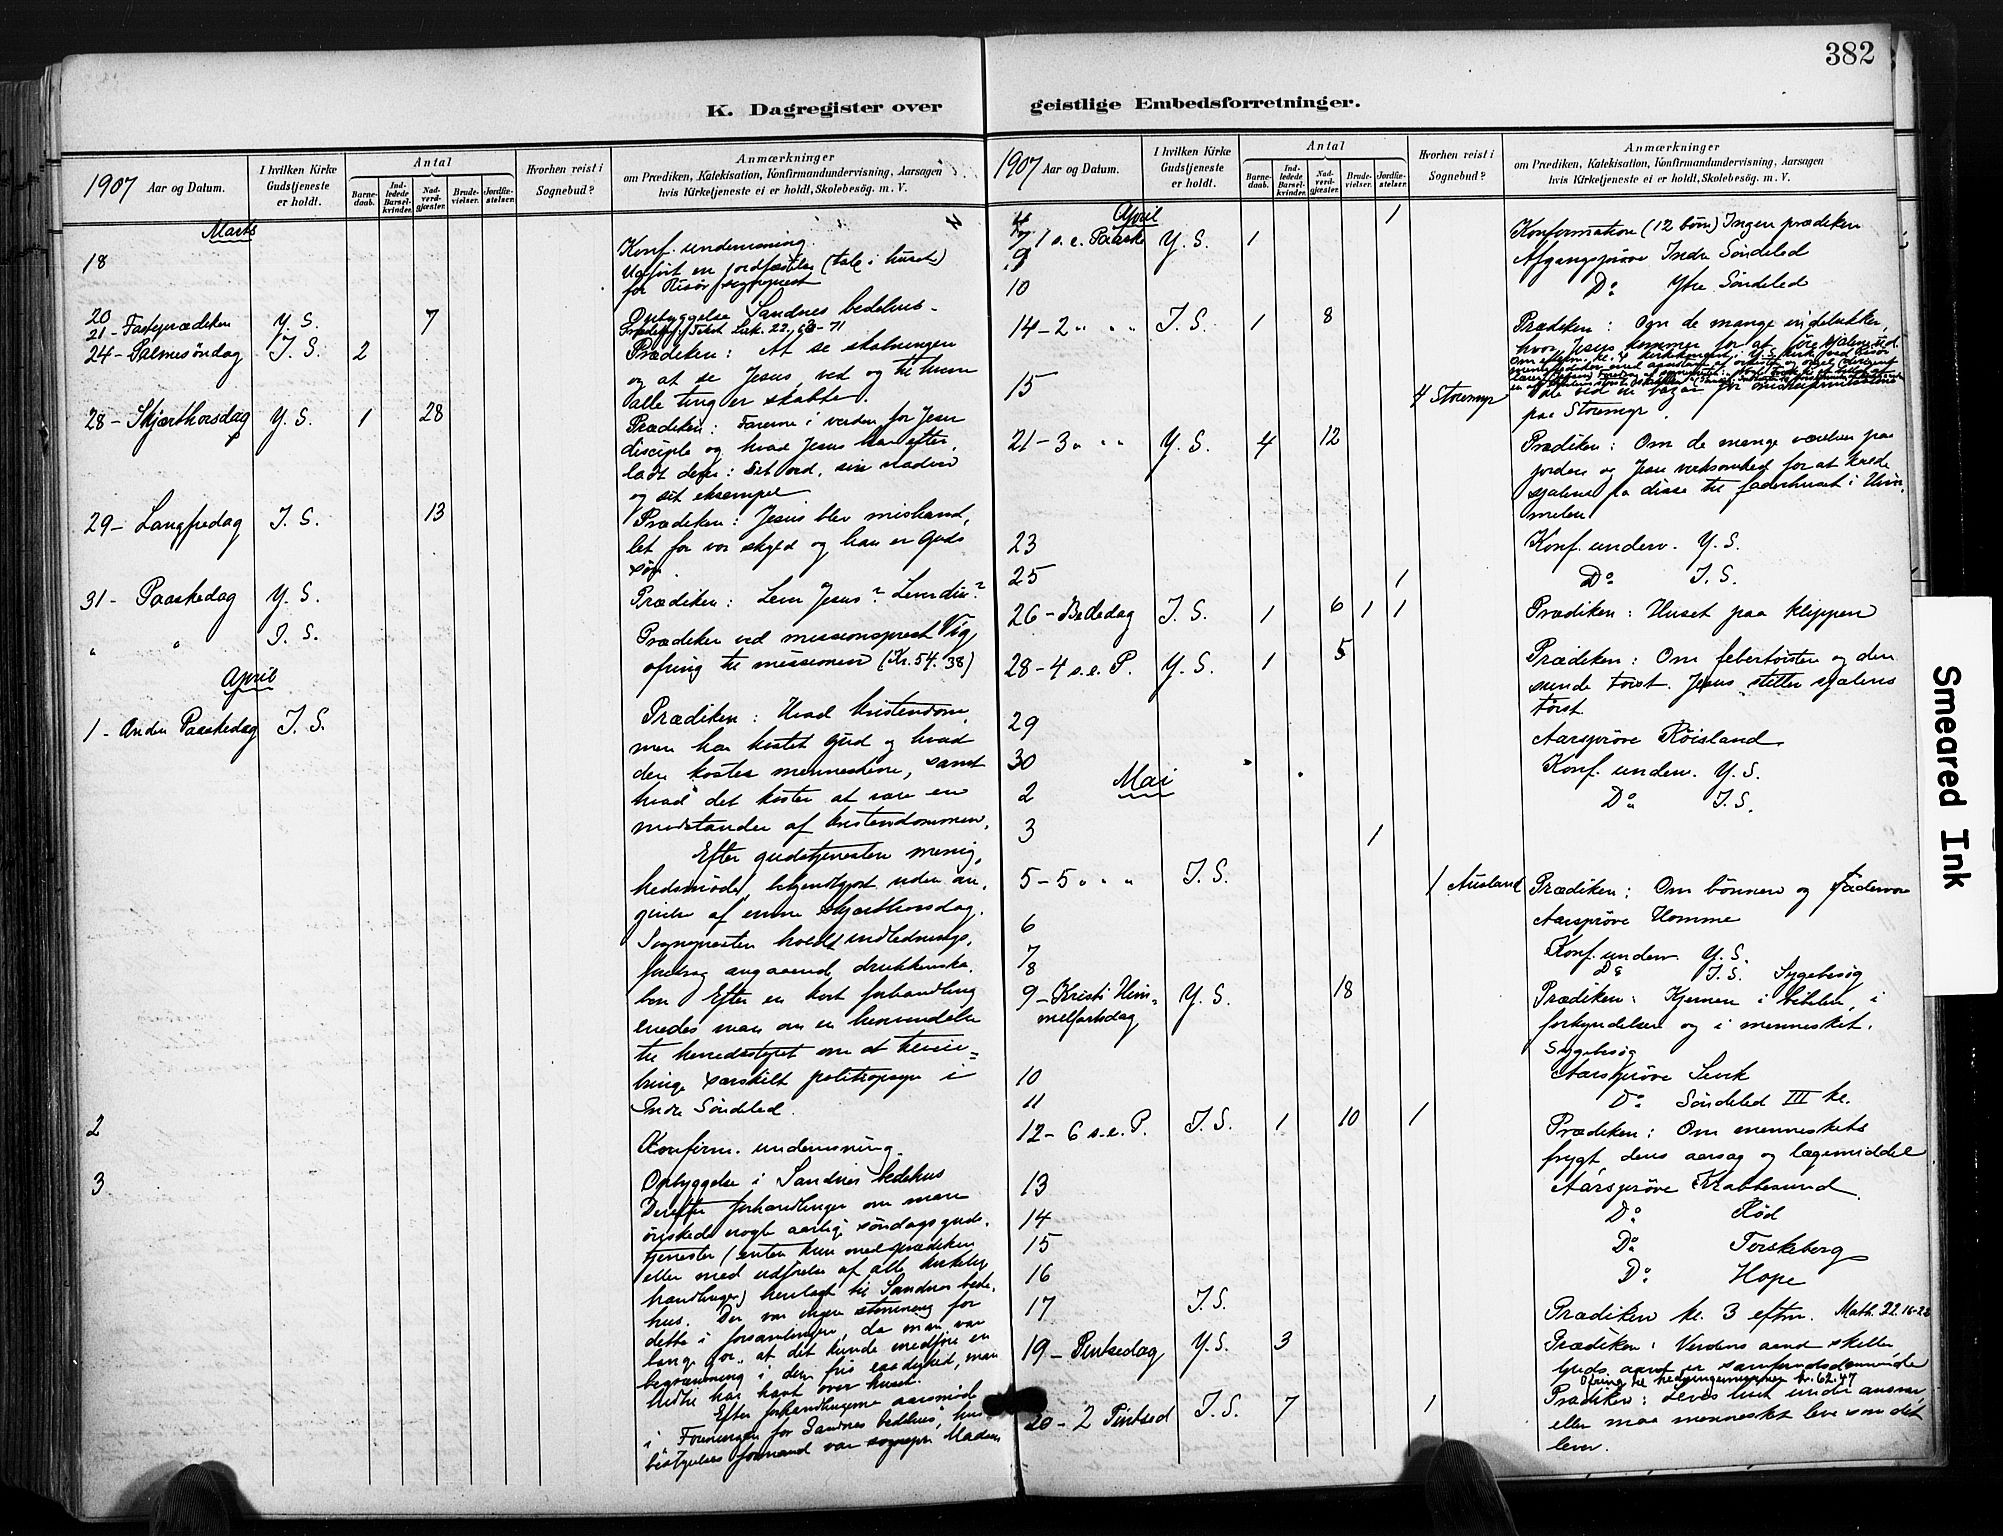 382
K. Dagregister over geistlige Embedsforretninger.
1907 Aar og Datum.
I hvilken Kirke Gudstjeneste er holdt.
Antal
Barnedaab.
Indledede Barselkvinder.
Nadverdgjæster.
Brudevielser.
Jordfæstelser.
Hvorhen reist i Sognebud?
Anmærkninger
om Prædiken, Katekisation, Konfirmandundervisning, Aarsagen
hvis Kirketjeneste ei er holdt, Skolebesøg. m. V.
Marts
18 Konf. undervisning.
Udført en jordfæstelse (tale i huset)
for Risør sogneprest
20 Opbyggelse Sandnes bedehus.
21 - Fasteprædiken Y. S. 7 Tekst Luk. 22, 63-71
24 - Palmesøndag I. S. 2 Prædiken: At se skabningen
og at se Jesus, ved og til hvem
alle ting er skabte.
28 - Skjærthorsdag Y. S. 1 28 Prædiken: Farerne i verden for Jesu
disciple og hvad Jesus har efter.
ladt dem: Sit ord, sin nadver
og sit eksempel
29 - Langfredag I. S. 13 Prædiken: Jesus blev mishand,
let for vor skyld og han er Guds
søn.
31 - Paaskedag Y. S. Prædiken: Lever Jesus? Lever du?
" " I. S. Prædiken ved missionsprest Vig
ofring til missionen (Kr. 54. 38)
April
1 - Anden Paaskedag I. S. Prædiken: Hvad kristendom,
men har kostet Gud og hvad
den koster menneskene, samt
hvad det koster at være en
modstander af kristendommen.
Efter gudstjenesten menig,
hedsmøde, bekjendtgjort uden an,
givelse af emne Skjærthorsdag.
Sognepresten holdt indlednings,
foredrag angaaende drukkenska,
ben. Efter en kort forhandling
enedes man om en henvendelse
til herredsstyret om at tilveie-
bringe særskilt politiopsyn i
Indre Søndeled.
2 Konfirm. undervisning.
3 Opbyggelse i Sandnes bedehus
Derefter forhandlinger om man
ønskede nogle aarlig søndagsguds.
tjenester (enten kun med prædiken
eller med udførelse af alle kirkelige
handlinger) henlagt til Sandnes bede,
hus. Der var ingen stemning for
dette i forsamlingen, da man var
bange for, at det kunde medføre en
begrænsning i den fris raadighed, man
hidtil har havt over huset.
Efter forhandlingerne aarsmøde
i Foreningen for Sandnes bedehus, hvis
bestyrelses formand var sognepr. Madsen
1907 Aar og Datum.
I hvilken Kirke Gudstjeneste er holdt.
Antal
Barnedaab.
Indledede Barselkvinder.
Nadverdgjæster.
Brudevielser.
Jordfæstelser.
Hvorhen reist i Sognebud?
Anmærkninger
om Prædiken, Katekisation, Konfirmandundervisning, Aarsagen
hvis Kirketjeneste ei er holdt, Skolebesøg. m. V.
April
4 1
7 1 s. e. Paaske Y. S. 1 Konfirmation (12 børn) Ingen prædiken
9 Afgangsprøve Indre Søndeled
10 Do Ytre Søndeled
14 - 2 " " " I. S. 1 8 Prædiken: Om de mange
hvor Jesus kommer for at
15 4 Stormyr Tale ved en bazar for
paa Stormyr.
21 - 3 " " " Y. S. 4 12 Prædiken: Om de mange værelser paa
jorden og Jesu virksomhed for at kalde
sjælene fra disse til faderhuset i Him,
melen
23 Konf. underv. Y. S.
25 1 Do I. S.
26 - Bededag I. S. 1 6 1 1 Prædiken: Huset paa klippen
28 - 4 s. e. P. Y. S. 1 5 Prædiken: Om febertørsten og den
sunde tørst. Jesus stiller sjælens
tørst.
29 Aarsprøve Røisland.
30 Konf. underv. Y. S.
Mai
2 Do I. S.
3 1
5 - 5 " " " I. S. 1 Ausland Prædiken: Om bønnen og fadervor
6 Aarsprøve Homme
7 Konf. underv Y. S.
8 Do I. S. Sygebesøg
9 - Kristi Him- Y. S. 18 Prædiken: Kjernen i bibelen, i
melfartsdag forkyndelsen og i mennesket.
Sygebesøg
10 Aarsprøve Levik
11 Do Søndeled III kl.
12 - 6 s. e. P. I. S. 1 10 1 Prædiken: Om menneskets
frygt, dens aarsag og lægemiddel
13 Aarsprøve Krabbesund
14 Do Rød
15 Do Torskeberg
16 Do Hope
17 I. S. Prædiken kl. 3 eftm. Math. 22. 16-22
19 - Pintsedag Y. S. 3 Prædiken: Verdens aand skiller
Guds aand er samfundsdannende
Ofring til hedningemissionen kr. 62. 47
20 - 2 Pintsed I. S. 7 1 Prædiken: Leves livet under ansvar
eller maa mennesket leve som det
lever.
Smeared Ink